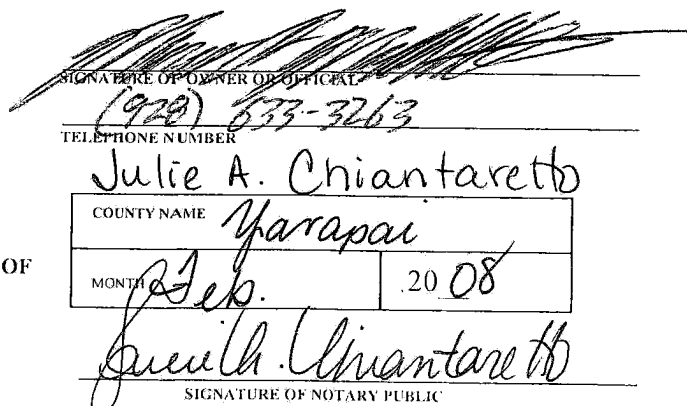 SIGNATURE OF OWNER OR OFFICIAL
(928) 633-3263
TELEPHONE NUMBER
Julie A. Chiantaretto
COUNTY NAME Yavapai
OF
MONTH Feb. 20 08
Julie A. Chiantaretto
SIGNATURE OF NOTARY PUBLIC